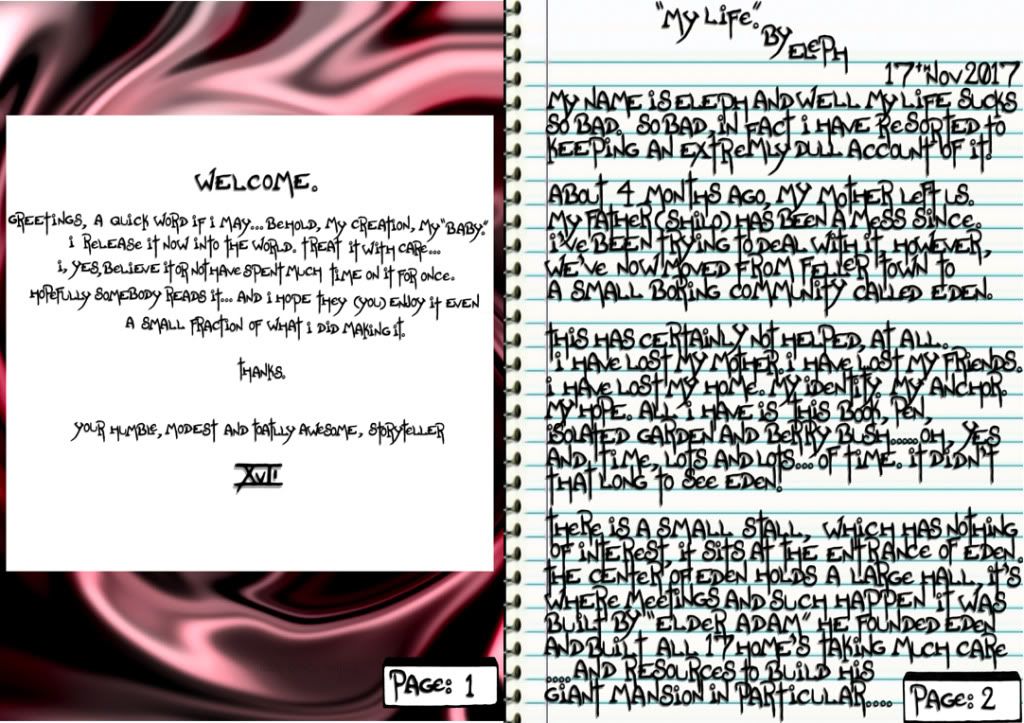 WELCOME.
GREETINGS, A QUICK WORD IF I MAY... BEHOLD, MY CREATION, MY "BABY."
I RELEASE IT NOW INTO THE WORLD. TREAT IT WITH CARE...
I, YES, BELIEVE IT OR NOT HAVE SPENT MUCH TIME ON IT FOR ONCE.
HOPEFULLY SOMEBODY READS IT... AND I HOPE THEY (YOU) ENJOY IT EVEN
A SMALL FRACTION OF WHAT I DID MAKING IT.
THANKS.
YOUR HUMBLE, MODEST AND TOATLLY AWESOME, STORYTELLER
XVII
PAGE: 1
"MY LIFE".
BY ELEPH
17TH NOV 2017
MY NAME IS ELEPH AND WELL MY LIFE SUCKS
SO BAD. SO BAD, IN FACT I HAVE RESORTED TO
KEEPING AN EXTREMLY DULL ACCOUNT OF IT!
ABOUT 4 MONTHS AGO, MY MOTHER LEFT US.
MY FATHER (SHILO) HAS BEEN A MESS SINCE.
I'VE BEEN TRYING TO DEAL WITH IT, HOWEVER,
WE'VE NOW MOVED FROM FELLER TOWN TO
A SMALL BORING COMMUNITY CALLED EDEN.
THIS HAS CERTAINLY NOT HELPED, AT ALL..
I HAVE LOST MY MOTHER. I HAVE LOST MY FRIENDS.
I HAVE LOST MY HOME. MY IDENTITY. MY ANCHOR.
MY HOPE. ALL I HAVE IS THIS BOOK, PEN,
ISOLATED GARDEN AND BERRY BUSH.....OH, YES
AND, TIME, LOTS AND LOTS.... OF TIME. IT DIDN'T
THAT LONG TO SEE EDEN!
THERE IS A SMALL STALL, WHICH HAS NOTHING
OF INTEREST, IT SITS AT THE ENTRANCE OF EDEN.
THE CENTER OF EDEN HOLDS A LARGE HALL, IT'S
WHERE MEETINGS AND SUCH HAPPEN IT WAS
BUILT BY "ELDER ADAM" HE FOUNDED EDEN
AND BUILT ALL 17 HOME'S TAKING MUCH CARE
....AND RESOURCES TO BUILD HIS
GIANT MANSION IN PARTICULAR....
PAGE: 2